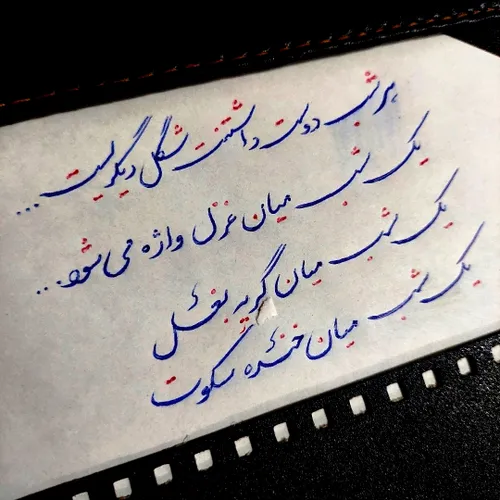 هر شب دوست داشتنت شکل دیگریست...
یک شب میان غزل واژه می شود...
یک شب میان گریه بغل
یک شب میان خنده سکوت